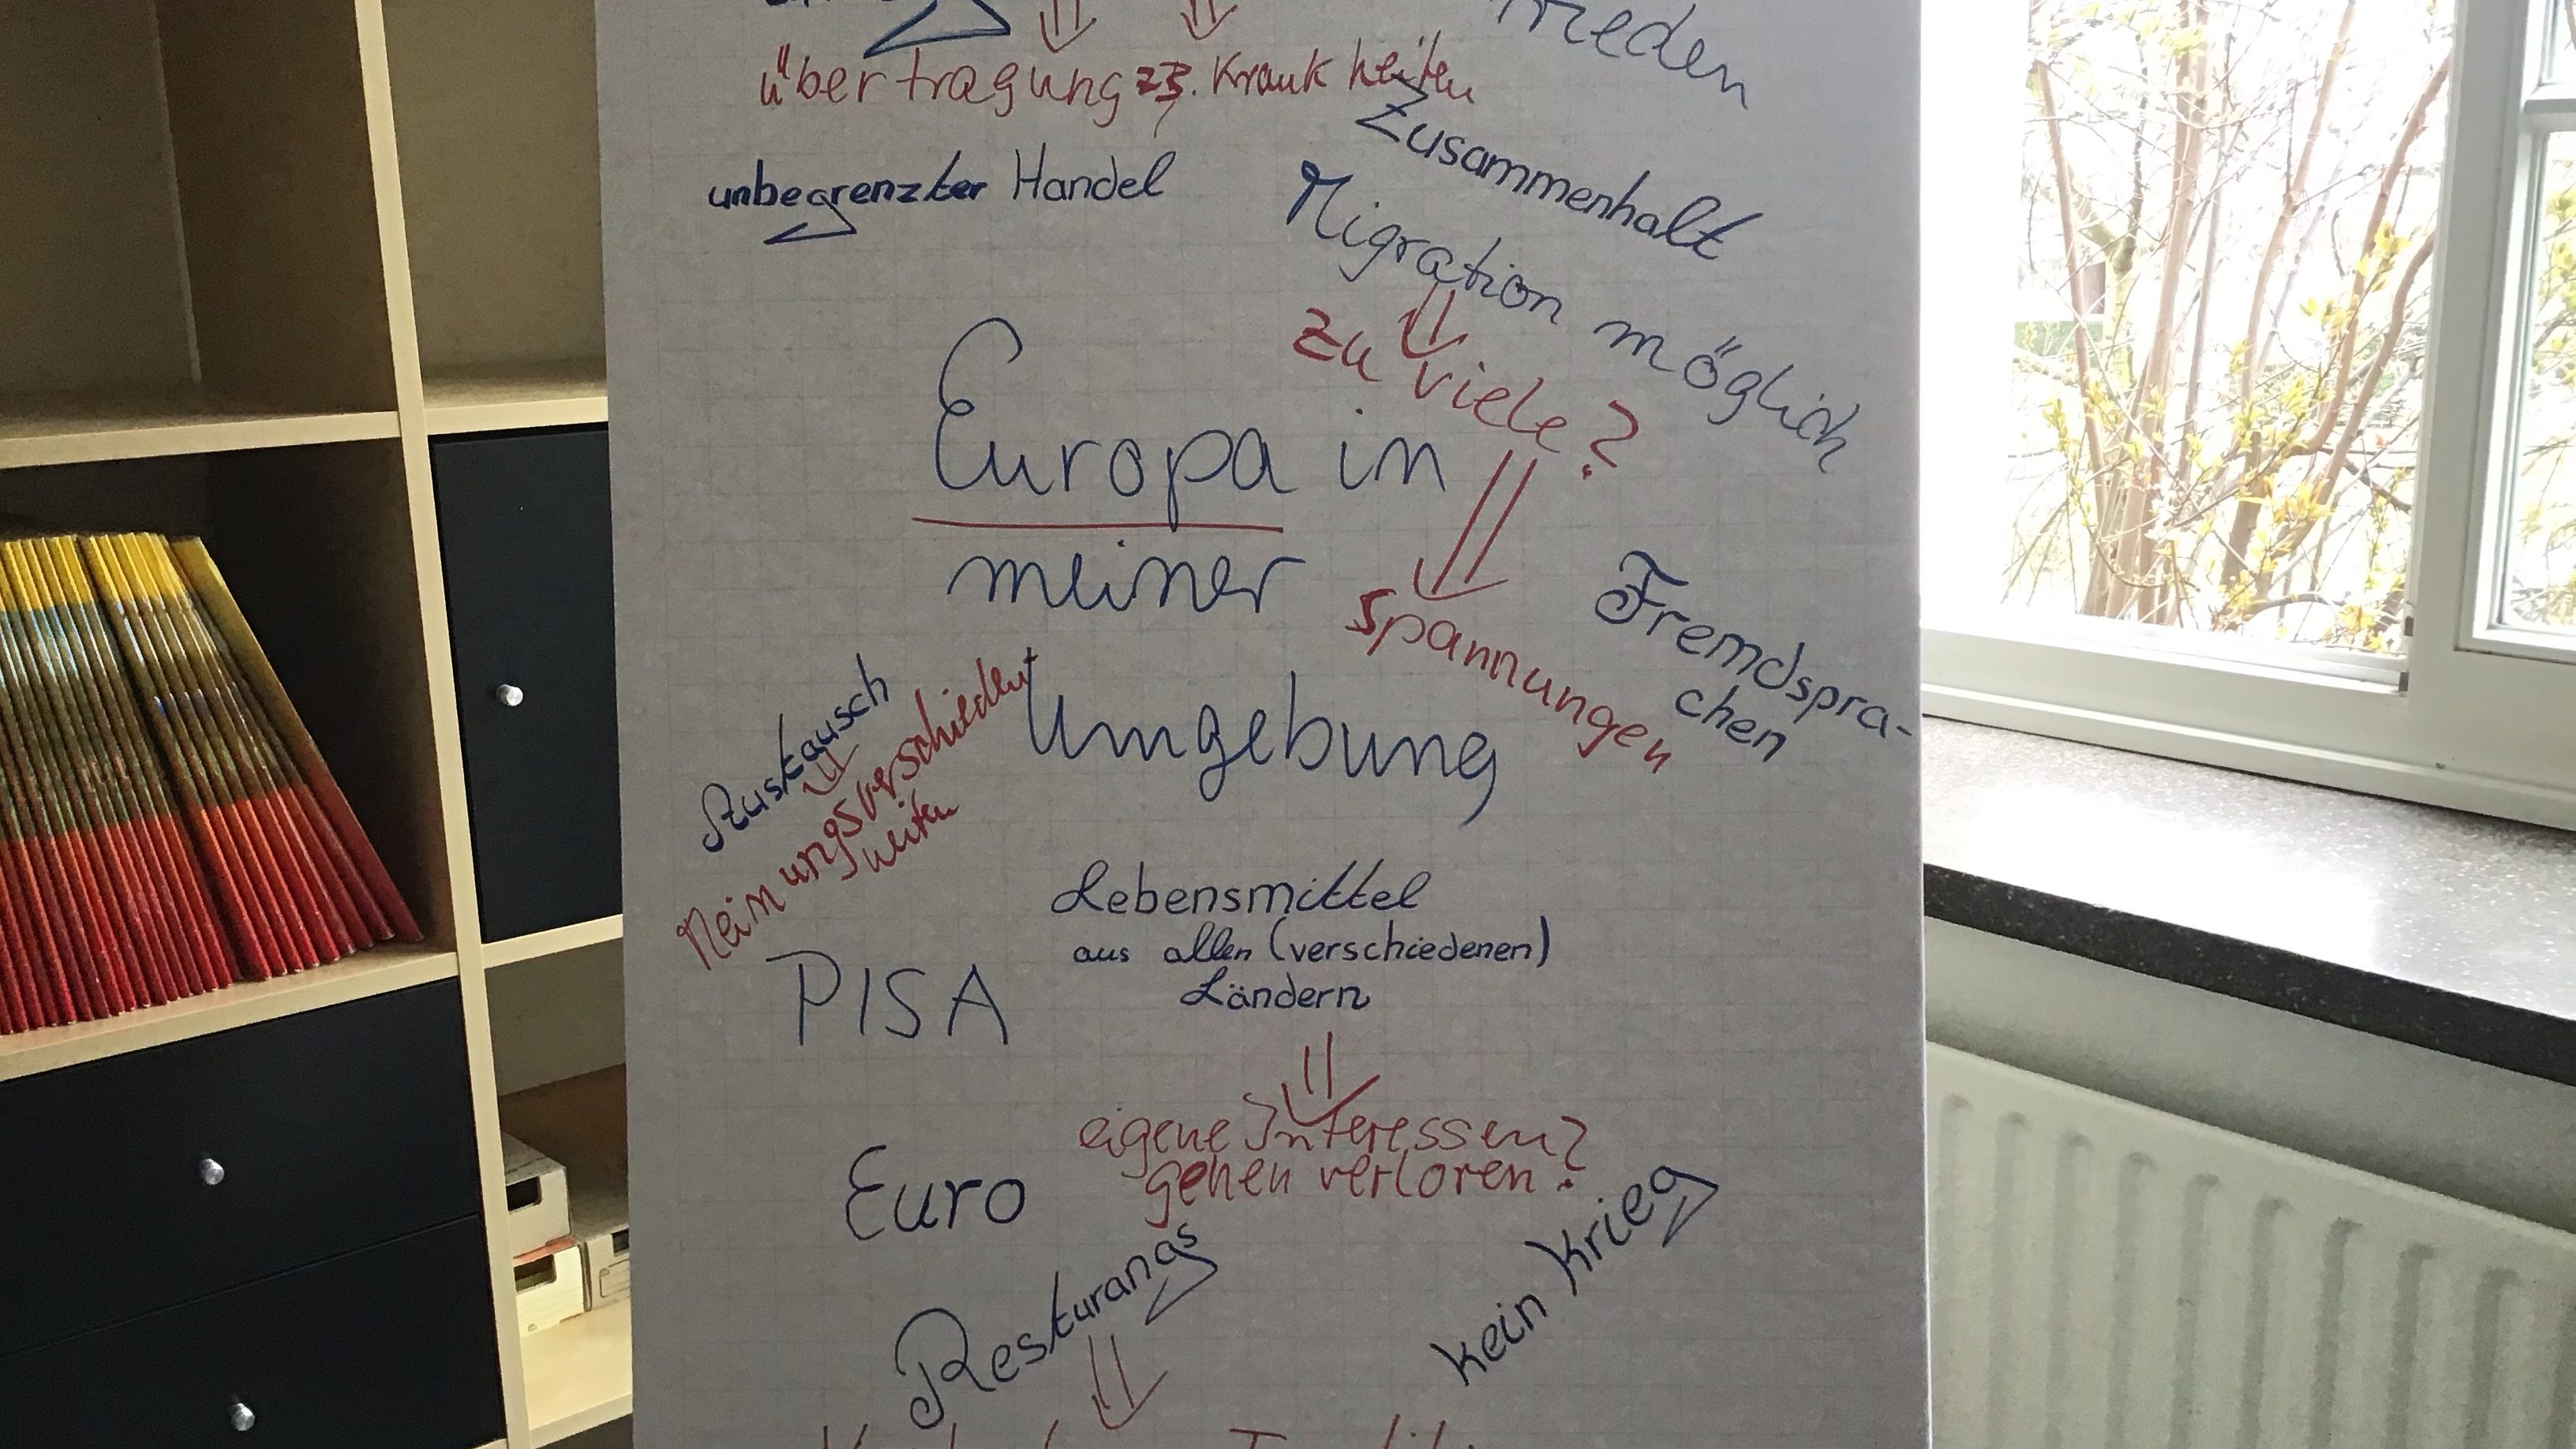 Frieden
übertragung zB. Krankheiten
Zusammenhalt
unbegrenzter Handel
Migration möglich
zu viele?
Europa in
meiner
Umgebung
Spannungen
Fremdspra-
chen
Austausch
Meinungsverschieden
heiten
Lebensmittel
aus allen (verschiedenen)
Ländern
PISA
eigene Interessen?
gehen verloren?
Euro
Resturangs
kein Krieg